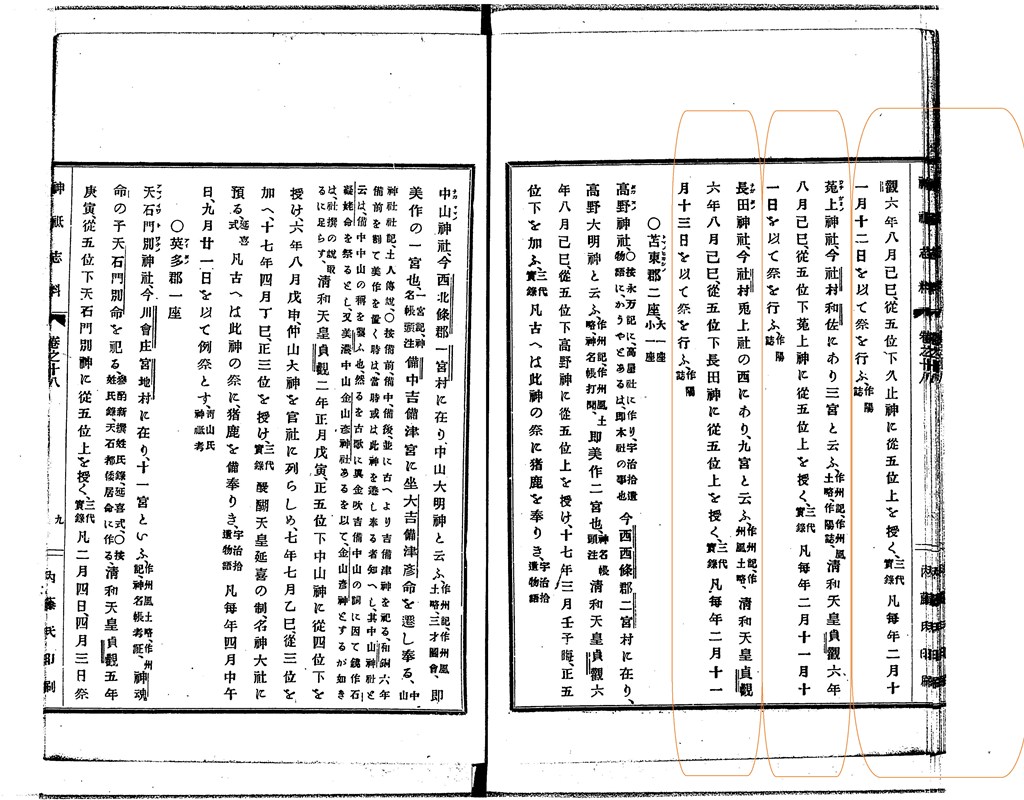 觀六年八月己巳、從五位下久止神に從五位上を授く、三代實錄 凡每年二月十
一月十二日を以て祭を行ふ、作陽誌
菟上神社、今社村和佐にあり三宮と云ふ、作州記、作州風土略、作陽誌、淸和天皇貞觀六年
八月己巳、從五位下菟上神に從五位上を授く、三代實錄 凡每年二月十一月十
一日を以て祭を行ふ、作陽誌
長田神社、今社村兎上社の西にあり、九宮と云ふ、作州記、作州風土略、淸和天皇貞觀
六年八月己巳、從五位下長田神に從五位上を授く、三代實錄 凡每年二月十一
月十三日を以て祭を行ふ、作陽誌
〇苫東郡二座、大一座小一座
高野神社、〇按永万記に、高屋社に作り、宇治拾遺物語に、かうやとあるは、卽本社の事也 今西西條郡二宮村に在り、
高野大明神と云ふ、作州記作州風土略、神名帳打聞、卽美作二宮也、神名帳頭注 淸和天皇貞觀六
年八月己巳、從五位下高野神に從五位上を授け、十七年三月壬子晦、正五
位下を加ふ、三代實錄 凡古へは此神の祭に猪鹿を奉りき、宇治拾遺物語
中山神社、今西北條郡一宮村に在り、中山大明神と云ふ、作州記、作州風土略、三才圖會、卽
美作の一宮也、一宮記、神名帳頭注 備中吉備津宮に坐大吉備津彦命を遷し奉る、中山
神社社記、土人傳說〇按備前、備中備後、並に古へより吉備津神を祀る、和銅六年
備前を割て美作を置く時は、當時或は此神を遷し奉る者知へし、其中山神社と
云は、備中中山の稱を襲ふ也、然るを古歌に眞金吹吉備中山の詞に因て鏡作石
凝姥命を祭るとし、又美濃中山金山彦神社あるを以て、金山彦神とするが如き
は、社撰の說取るに足らす、淸和天皇貞觀二年正月戊寅、正五位下中山神に從四位下を
授け、六年八月戊申仲山大神を官社に列らしめ、七年七月乙巳從三位を
加へ、十七年四月丁巳、正三位を授け、三代實錄 醍醐天皇延喜の制名神大社に
預る、延喜式 凡古へは此神の祭に猪鹿を備奉りき、宇治拾遺物語 凡每年四月中午
日、九月廿一日を以て例祭とす、河山氏神祗考
〇英多郡一座
天石門別神社、今川會庄宮地村に在り、十一宮といふ、作州風土略、作州記神名帳考証、神魂
命の子天石門別命を祀る、參酌新撰姓氏錄、延喜式、〇按姓氏錄、天石都倭居命に作る、淸和天皇貞觀五年
庚寅從五位下天石門別神に從五位上を授く、三代實錄 凡二月四日四月三日祭
神祗志料
卷之十八
九
內藤氏印刷